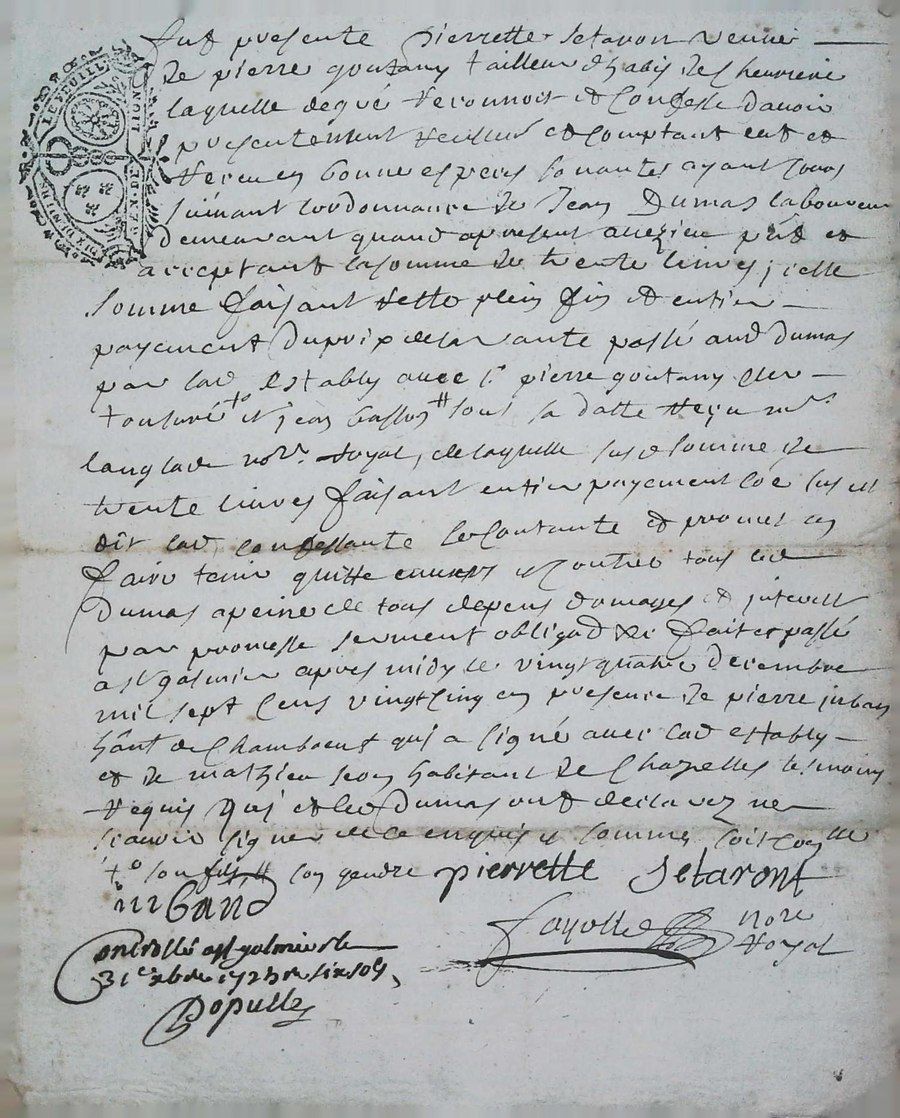 LE FEUILL
GEN. DE LION
DIX DENIERS
fut presente pierrette setaron veuve
de pierre goutany tailleur dhabis de Chevrieres
laquelle de gré reconnoit et confesse davoir
presentement et comptant eut et
receu en bonne especes sonantes ayant cours
suivant lordonnance de Jean Dumas laboureur
demeurant quand apresent pnt et
acceptant la somme de trente livres jcelle
somme faisant reste plein fin et entier
payement du prix de la vante passé aud dumas
par lad establye avec sr pierre goutany cler
tonsuré +o et jean # sous sa datte reçu me
langlade nore royal, de laquelle susd somme de
trente livres faisant entier payement co͞e sus est
dit lad confessante se contante et promet en
faire tenir quitte envers et contre tous led
Dumas a peine de tous depens domages et jnterest
par promesse serment obligaon &c fait et passé
a st galmier apres midy le vingt quatre decembre
mil sept cens vingt cinq en presence de pierre jnban
ha͞nt de Chamboeuf qui a signé avec lad establye
et de mathieu habitant de Chazelles tesmoins
requis qui et led Dumas ont declarez ne
scavoir signer de ce enquis et sommé
+o son fils, # son gendre pierrette setaront
fayolle nore
royal
Controllé a st galmier le
31e xbre 1725 re six sols
Populle